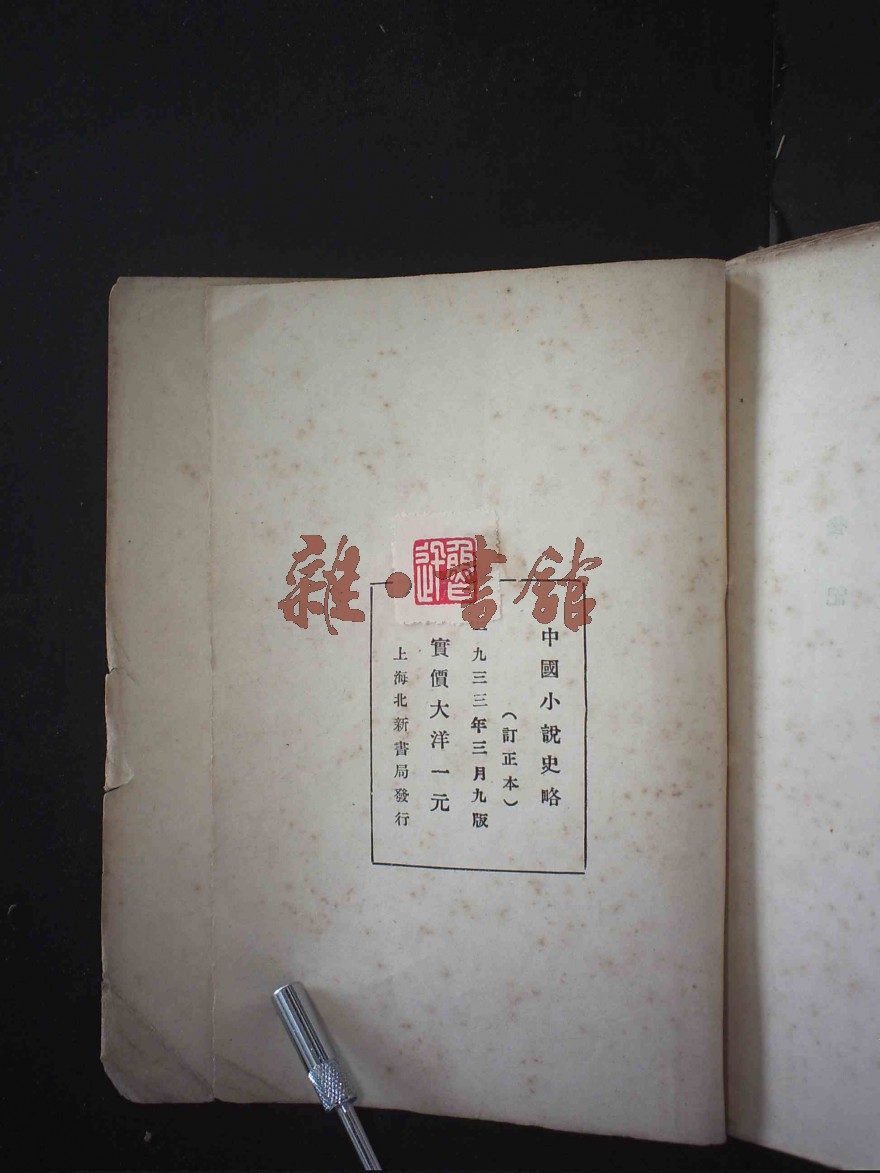 中國小說史略
（訂正本）
一九三三年三月九版
實價大洋一元
上海北新書局發行
雜·書館
魯迅
後記